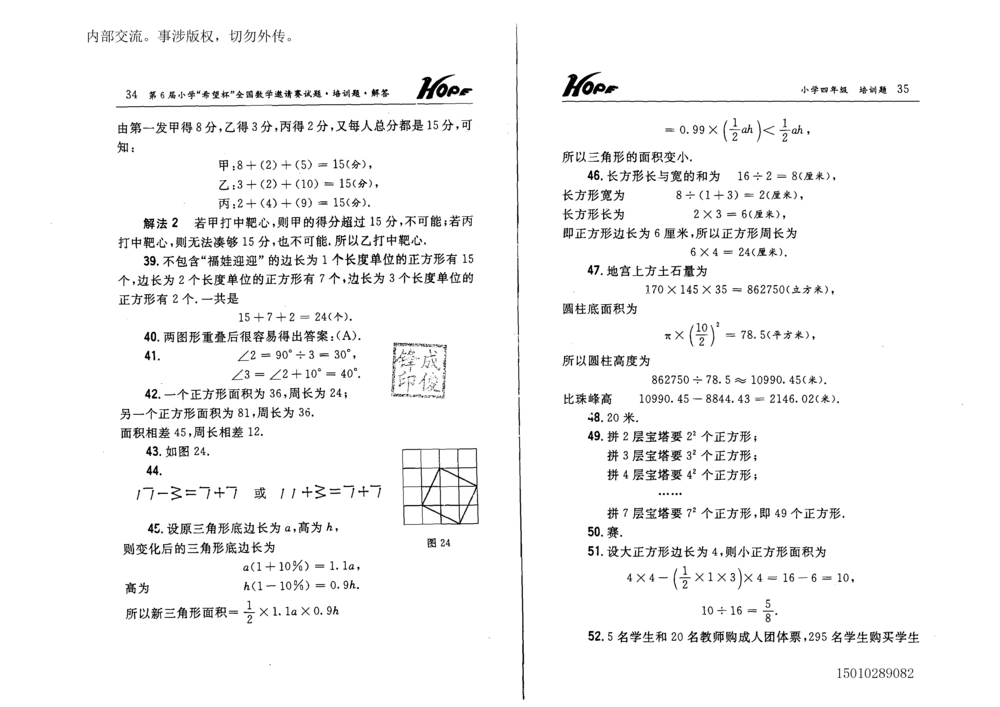 内部交流。事涉版权，切勿外传。
34 第6届小学“希望杯”全国数学邀请赛试题·培训题·解答 HOPE
由第一发甲得8分,乙得3分,丙得2分,又每人总分都是15分,可
知:
甲:8+(2)+(5)=15(分),
乙:3+(2)+(10)=15(分),
丙:2+(4)+(9)=15(分).
解法2 若甲打中靶心,则甲的得分超过15分,不可能;若丙
打中靶心,则无法凑够15分,也不可能.所以乙打中靶心.
39.不包含“福娃迎迎”的边长为1个长度单位的正方形有15
个,边长为2个长度单位的正方形有7个,边长为3个长度单位的
正方形有2个.一共是
15+7+2=24(个).
40.两图形重叠后很容易得出答案:(A).
41. ∠2=90°÷3=30°,
∠3=∠2+10°=40°.
42.一个正方形面积为36,周长为24;
另一个正方形面积为81,周长为36.
面积相差45,周长相差12.
43.如图24.
44.
17-3=7+7 或 11+3=7+7
45.设原三角形底边长为a,高为h,
则变化后的三角形底边长为
a(1+10%)=1.1a,
高为 h(1-10%)=0.9h.
所以新三角形面积=1/2×1.1a×0.9h
图24
锋成
印俊
HOPE 小学四年级 培训题 35
=0.99×(1/2ah)<1/2ah,
所以三角形的面积变小.
46.长方形长与宽的和为 16÷2=8(厘米),
长方形宽为 8÷(1+3)=2(厘米),
长方形长为 2×3=6(厘米),
即正方形边长为6厘米,所以正方形周长为
6×4=24(厘米).
47.地宫上方土石量为
170×145×35=862750(立方米),
圆柱底面积为
π×(10/2)²=78.5(平方米),
所以圆柱高度为
862750÷78.5≈10990.45(米).
比珠峰高 10990.45-8844.43=2146.02(米).
48.20米.
49.拼2层宝塔要2²个正方形;
拼3层宝塔要3²个正方形;
拼4层宝塔要4²个正方形;
……
拼7层宝塔要7²个正方形,即49个正方形.
50.赛.
51.设大正方形边长为4,则小正方形面积为
4×4-(1/2×1×3)×4=16-6=10,
10÷16=5/8.
52.5名学生和20名教师购成人团体票,295名学生购买学生
15010289082